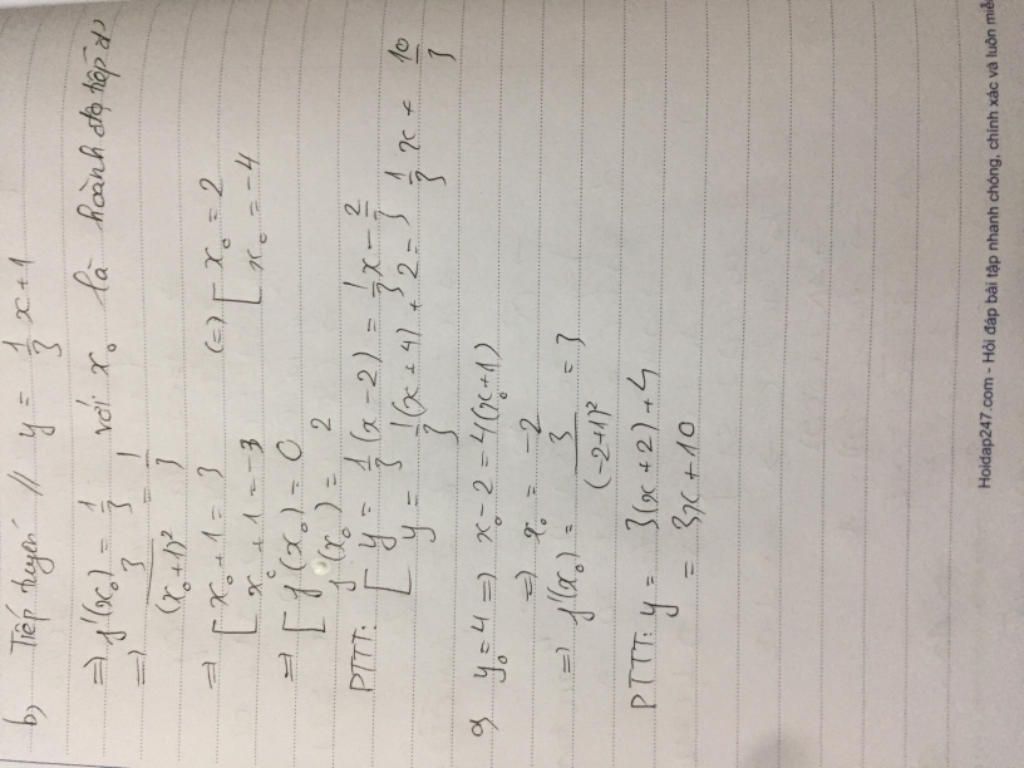 b, Tiếp tuyến // y = 1/3 x + 1
=) f'(x₀) = 1/3 với x₀ là hoành độ tiếp
=) 3/(x₀+1)² = 1/3
=) [ x₀ + 1 = 3 (=) [ x₀ = 2
x₀ + 1 = -3 x₀ = -4
=) [ f(x₀) = 0
f(x₀) = 2
PTTT: [ y = 1/3 (x - 2) = 1/3 x - 2/3
y = 1/3 (x + 4) + 2 = 1/3 x + 10/3
y₀ = 4 =) x₀ - 2 = 4(x₀ + 1)
=) x₀ = -2
=) f'(x₀) = 3/(-2+1)² = 3
PTTT: y = 3(x + 2) + 4
= 3x + 10
Hoidap247.com - Hỏi đáp bài tập nhanh chóng, chính xác và luôn